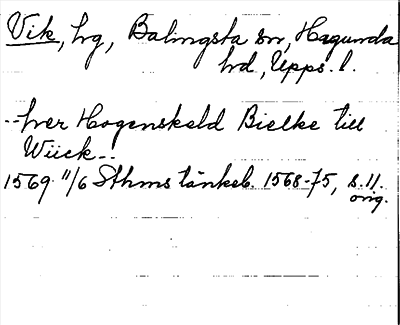 Vik, hg, Balingsta sn, Hagunda
hd, Upps. l.
--her Hogenskeld Bielke till
Wiick--
1569 11/6 Sthms tänkeb. 1568-75, s. 11.
orig.